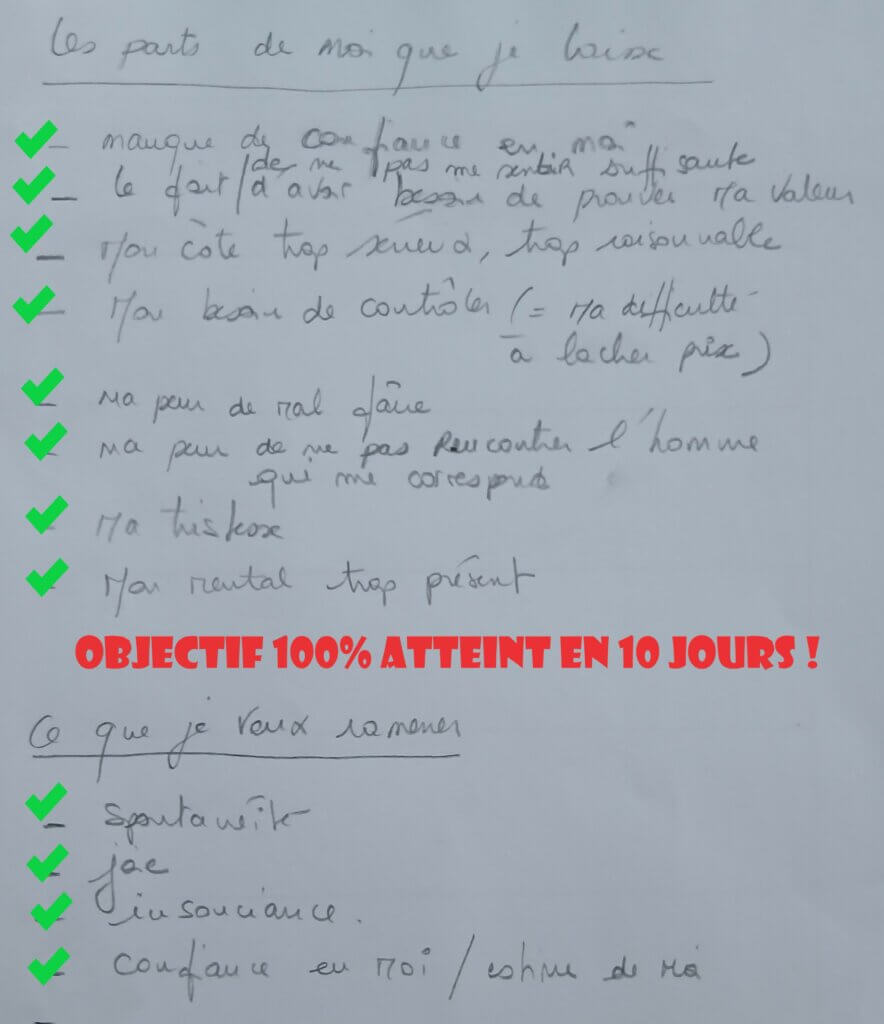 Les parts de moi que je laisse
- manque de confiance en moi
de ne pas me sentir suffisante
- le fait / d'avoir besoin de prouver ma valeur
- Mon côté trop sérieux, trop raisonnable
- Mon besoin de contrôler (= ma difficulté
à lacher prise)
- Ma peur de mal faire
- Ma peur de ne pas rencontrer l'homme
qui me correspond
- Ma tristesse
- Mon mental trop présent
OBJECTIF 100% ATTEINT EN 10 JOURS !
Ce que je veux ramener
- Spontanéité
- joie
- insouciance.
- confiance en moi / estime de moi